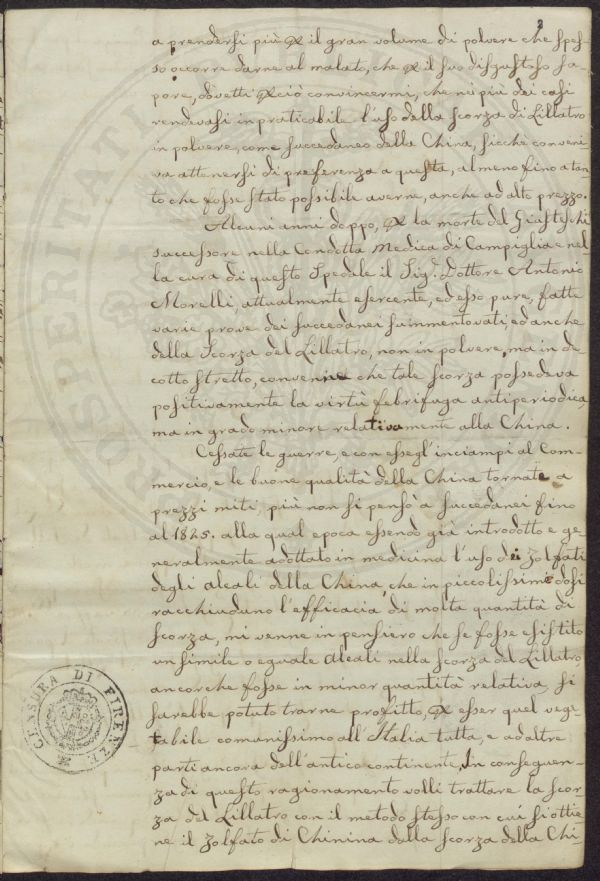 2
a prendersi più p il gran volume di polvere che spes-
so occorre darne al malato, che p il suo disgustoso sa-
pore, dovetti pciò convincermi, che nei più dei casi
rendevasi inpraticabile l'uso della scorza di Lillatro
in polvere, come succedaneo della China, sicchè conveni-
va attenersi di preferenza a questa, almeno fino a tan-
to che fosse stato possibile averne, anche ad alto prezzo.
Alcuni anni doppo, p la morte del
successore nella Condotta Medica di Campiglia e nel-
la cura di questo Spedale il Sig.r Dottore Antonio
Morelli, attualmente esercente, ed esso pure, fatte
varie prove dei succedanei suinmentovati, ed anche
della Scorza del Lillatro, non in polvere, ma in de
cotto stretto, convenne che tale scorza possedeva
positivamente la virtù febrifuga antiperiodica,
ma in grado minore relativamente alla China.
Cessate le guerre, e con esse gl'inciampi al Com-
mercio, e le buone qualità della China tornate a
prezzi miti, più non si pensò a succedanei fino
al 1825. alla qual epoca essendo già introdotto e ge-
neralmente adottato in medicina l'uso dei zolfati
degli alcali della China, che in piccolissime dosi
racchiudano l'efficacia di molta quantità di
scorza, mi venne in pensiero che se fosse esistito
un simile o eguale alcali nella scorza del Lillatro,
ancorche fosse in minor quantità relativa, si
sarebbe potuto trarne profitto, p esser quel vege-
tabile comunissimo all'Italia tutta, e ad altre
parti ancora dell'antico continente. In conseguen-
za di questo ragionamento volli trattare la scor-
za del Lillatro con il metodo stesso con cui si ottie-
ne il zolfato di Chinina dalla scorza della Chi-
CENSURA DI FIRENZE
PROSPERITATI